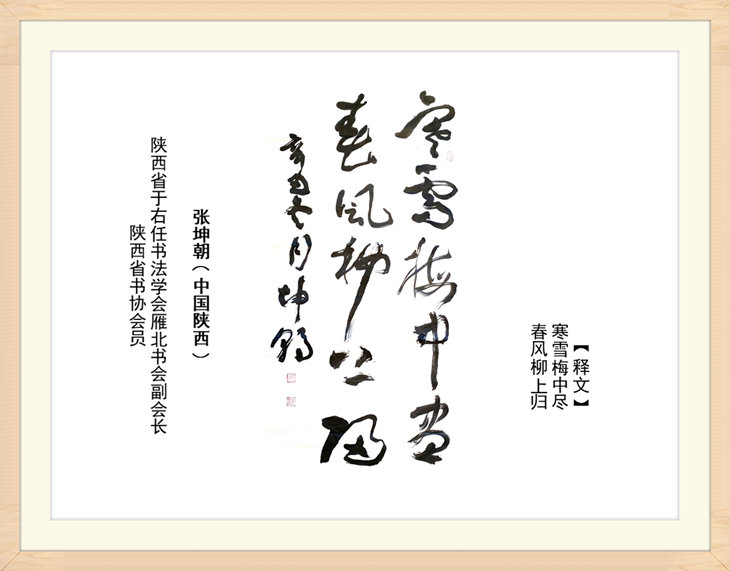 【释文】
寒雪梅中尽
春风柳上归
寒雪梅中尽
春风柳上归
辛丑冬月坤朝
张坤朝（中国陕西）
陕西省于右任书法学会雁北书会副会长
陕西省书协会员